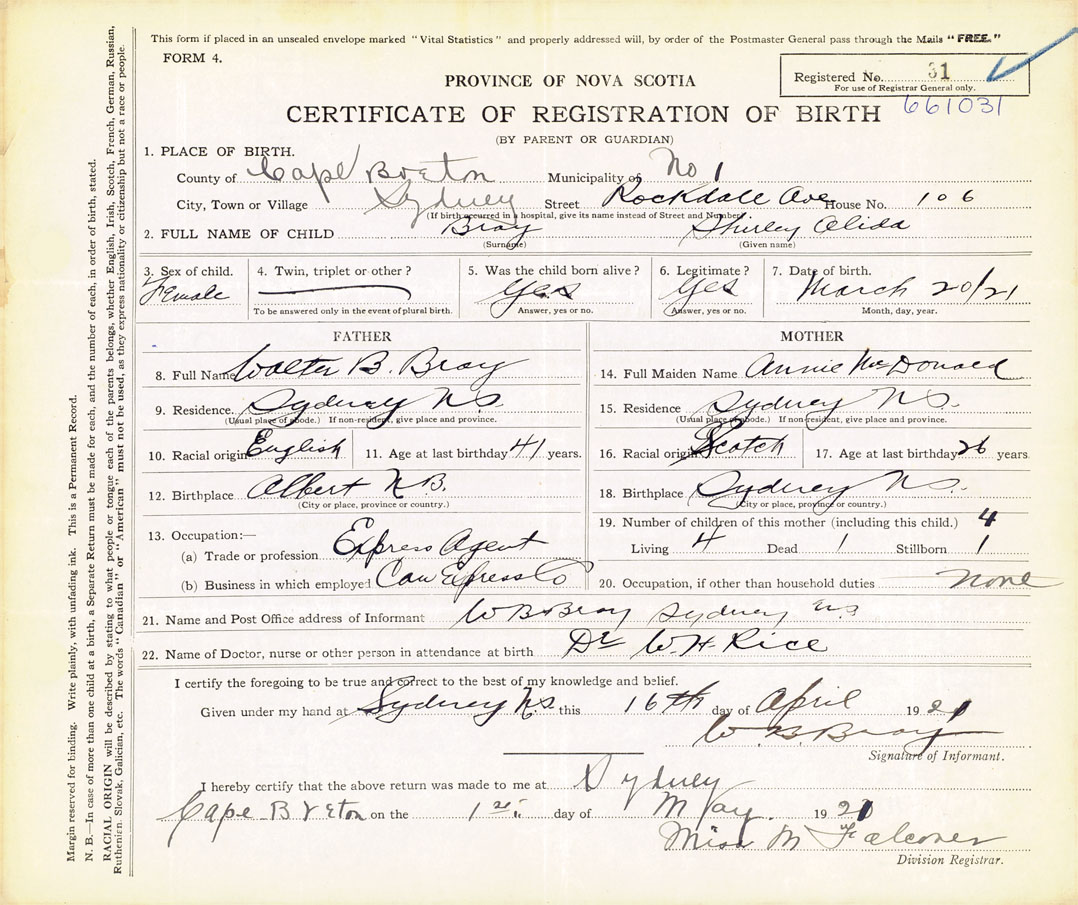 This form if placed in an unsealed envelope marked "Vital Statistics" and properly addressed will, by order of the Postmaster General pass through the Mails "FREE."
FORM 4.
Registered No. 31
For use of Registrar General only.
661031
PROVINCE OF NOVA SCOTIA
CERTIFICATE OF REGISTRATION OF BIRTH
(BY PARENT OR GUARDIAN)
1. PLACE OF BIRTH.
County of Cape Breton Municipality of No 1
City, Town or Village Sydney Street Rockdale Ave House No. 106
(If birth occurred in a hospital, give its name instead of Street and Number)
2. FULL NAME OF CHILD Bray Shirley Alida
(Surname) (Given name)
3. Sex of child. 4. Twin, triplet or other? 5. Was the child born alive? 6. Legitimate? 7. Date of birth.
Female Yes Yes March 20/21
To be answered only in the event of plural birth. Answer, yes or no. Answer, yes or no. Month, day, year.
FATHER
8. Full Name Walter B. Bray
9. Residence. Sydney N.S.
(Usual place of abode.) If non-resident, give place and province.
10. Racial origin English 11. Age at last birthday 41 years.
12. Birthplace Albert N.B.
(City or place, province or country.)
13. Occupation:—
(a) Trade or profession Express Agent
(b) Business in which employed Can Express Co
MOTHER
14. Full Maiden Name Annie McDonald
15. Residence Sydney N.S.
(Usual place of abode.) If non-resident, give place and province.
16. Racial origin Scotch 17. Age at last birthday 26 years
18. Birthplace Sydney N.S.
(City or place, province or country.)
19. Number of children of this mother (including this child.) 4
Living 4 Dead 1 Stillborn 1
20. Occupation, if other than household duties none
21. Name and Post Office address of Informant W B Bray Sydney N.S.
22. Name of Doctor, nurse or other person in attendance at birth Dr W. H. Rice
I certify the foregoing to be true and correct to the best of my knowledge and belief.
Given under my hand at Sydney N.S. this 16th day of April 1921
W. B. Bray
Signature of Informant.
I hereby certify that the above return was made to me at Sydney
Cape Breton on the day of May 1921
Miss M Falconer
Division Registrar.
Margin reserved for binding. Write plainly, with unfading ink. This is a Permanent Record.
N. B.—In case of more than one child at a birth, a Separate Return must be made for each, and the number of each, in order of birth, stated.
RACIAL ORIGIN will be described by stating to what people or tongue each of the parents belongs, whether English, Irish, Scotch, French, German, Russian,
Ruthenian, Slovak, Galician, etc. The words "Canadian" or "American" must not be used, as they express nationality or citizenship but not a race or people.